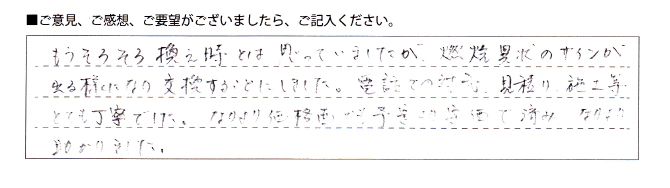 ■ご意見、ご感想、ご要望がございましたら、ご記入ください。
もうそろそろ換え時とは思っていましたが 燃焼異状のサインが
出る様になり交換することにしました。電話での対応、見積り、施工等
とても丁寧でした。なにより価格面が予定より安価で済み なにより
助かりました。